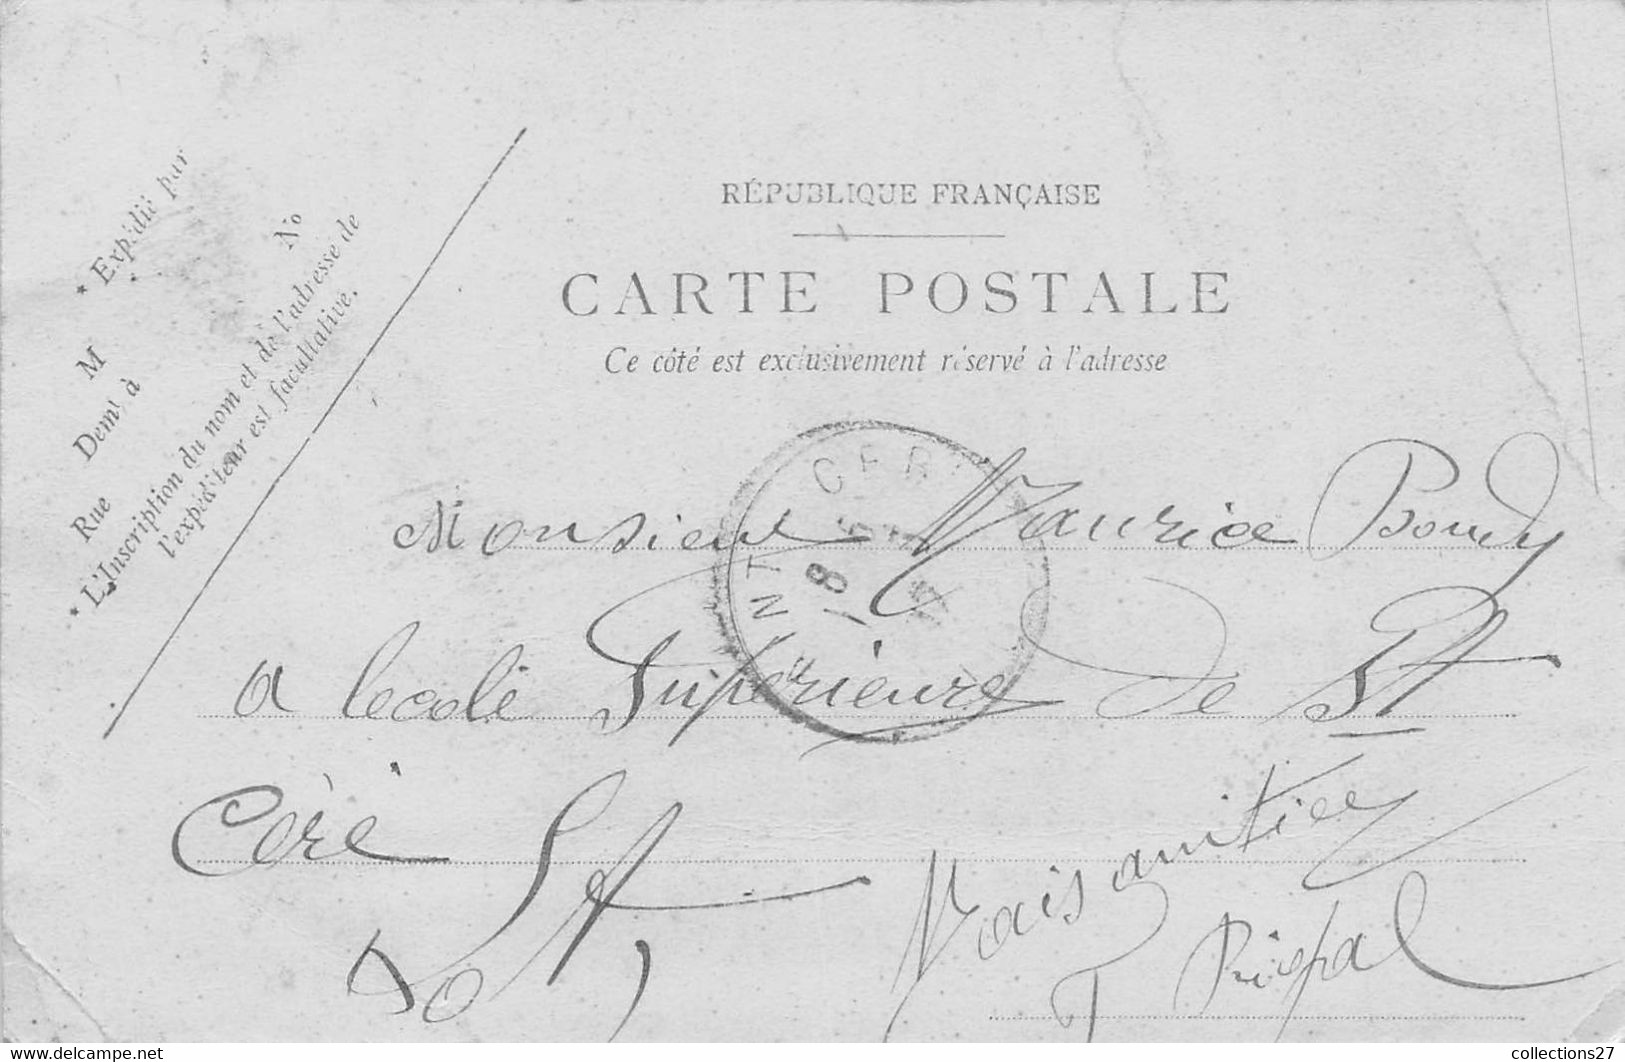 RÉPUBLIQUE FRANÇAISE
CARTE POSTALE
Ce côté est exclusivement réservé à l'adresse
* Expédié par
M
Demt à
Rue
No
* L'Inscription du nom et de l'adresse de
l'expéditeur est facultative.
Monsieur Maurice Boudy
a lecole Supérieure de St
Céré
Lot
amitiés
Prispal
collections27